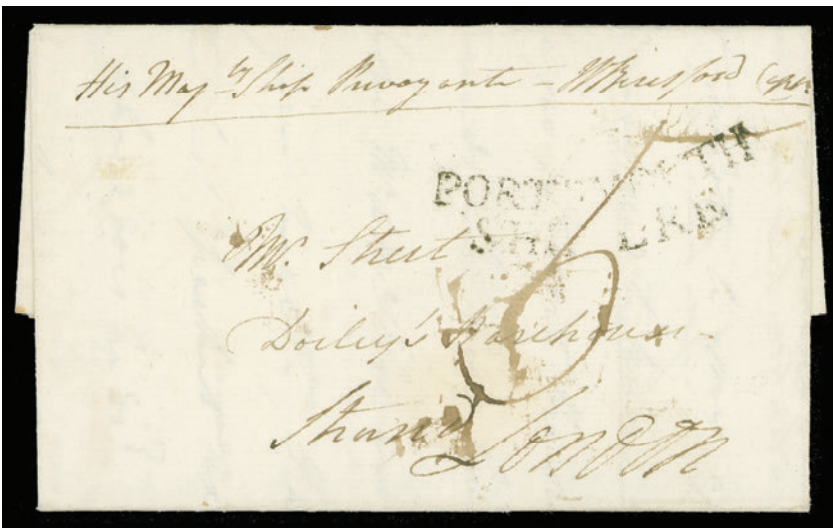 His Maj.ty Ship Prevoyante - JBeresford Capt
PORTSMOUTH
SHIP LRE
Mr. Street
Doiley's Warehouse
Strand London